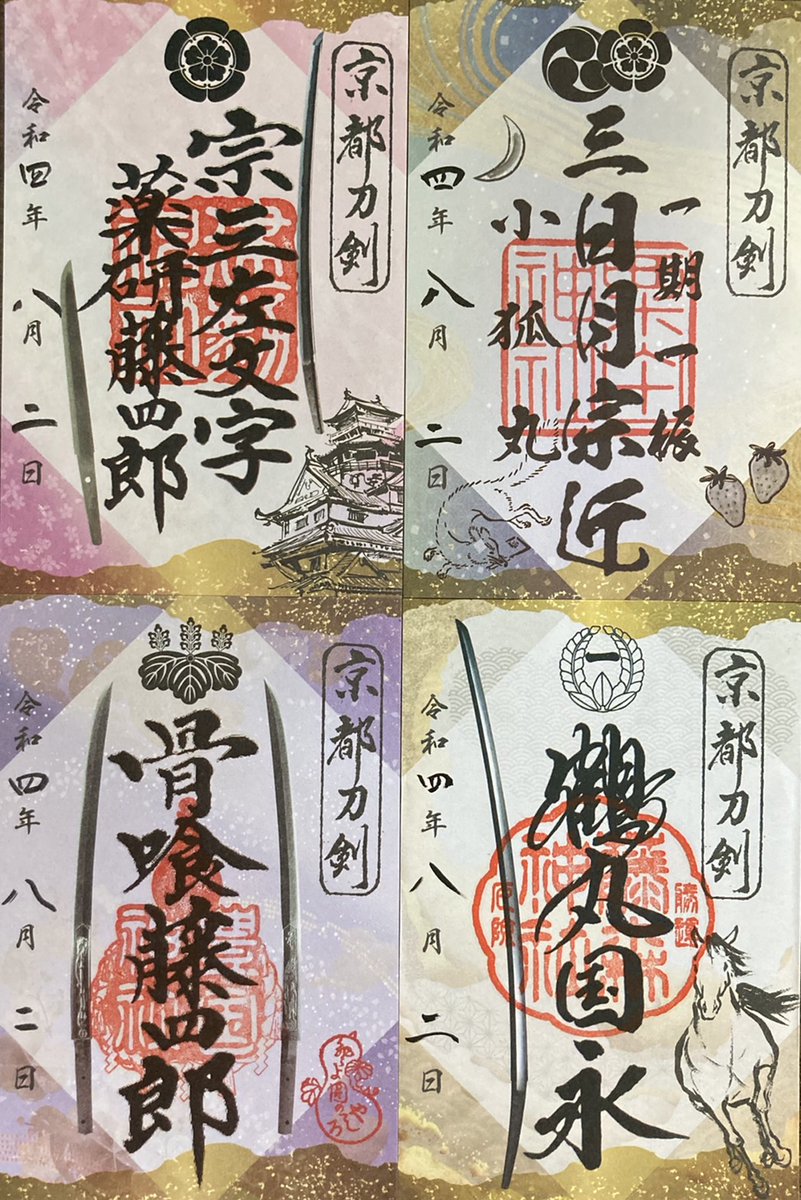 京都刀剣
宗三左文字
薬研藤四郎
令和四年 八月 二日
京都刀剣
一期一振
三日月宗近
小狐丸
令和四年 八月 二日
京都刀剣
骨喰藤四郎
令和四年 八月 二日
京都刀剣
鶴丸国永
勝運
令和四年 八月 二日